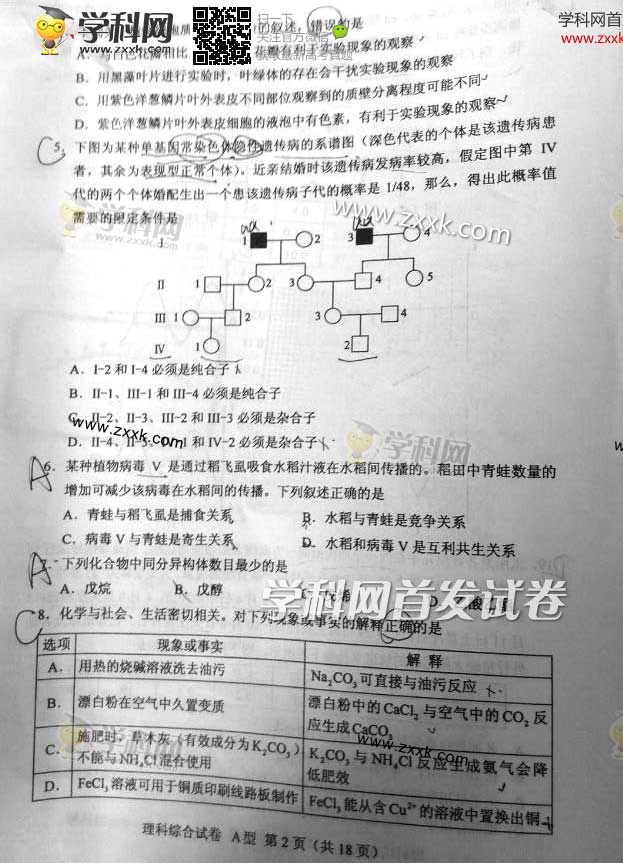 学科网
www.zxxk.com
扫一下
关注官方微信
学科网首
www.zxxk.
的叙述，错误的是
花瓣有利于实验现象的观察
B．用黑藻叶片进行实验时，叶绿体的存在会干扰实验现象的观察
C．用紫色洋葱鳞片叶外表皮不同部位观察到的质壁分离程度可能不同
D．紫色洋葱鳞片叶外表皮细胞的液泡中有色素，有利于实验现象的观察
C
5．下图为某种单基因常染色体隐性遗传病的系谱图（深色代表的个体是该遗传病患
者，其余为表现型正常个体）。近亲结婚时该遗传病发病率较高，假定图中第 IV
代的两个个体婚配生出一个患该遗传病子代的概率是 1/48，那么，得出此概率值
需要的限定条件是
www.zxxk.com
学科网
aa aa
I 1 2 3 4
II 1 2 3 4 5
III 1 2 3 4
IV 1 2
A．I-2 和 I-4 必须是纯合子
B．II-1、III-1 和 III-4 必须是纯合子
C．II-2、II-3、III-2 和 III-3 必须是杂合子
www.zxxk.com
D．II-4、II-5、 1 和 IV-2 必须是杂合子
学科网
A
6．某种植物病毒 V 是通过稻飞虱吸食水稻汁液在水稻间传播的。稻田中青蛙数量的
增加可减少该病毒在水稻间的传播。下列叙述正确的是
A．青蛙与稻飞虱是捕食关系 B．水稻与青蛙是竞争关系
C．病毒 V 与青蛙是寄生关系 D．水稻和病毒 V 是互利共生关系
A
7．下列化合物中同分异构体数目最少的是
A．戊烷 B．戊醇
学科网首发试卷
C
8．化学与社会、生活密切相关。对下列现象或事实的解释正确的是
选项 现象或事实 解 释
A． 用热的烧碱溶液洗去油污 Na₂CO₃可直接与油污反应
B． 漂白粉在空气中久置变质 漂白粉中的 CaCl₂ 与空气中的 CO₂ 反
应生成 CaCO₃
C． 施肥时，草木灰（有效成分为 K₂CO₃）
不能与 NH₄Cl 混合使用 K₂CO₃ 与 NH₄Cl 反应生成氨气会降
低肥效
D． FeCl₃ 溶液可用于铜质印刷线路板制作 FeCl₃ 能从含 Cu²⁺ 的溶液中置换出铜
学科网
www.zxxk.com
理科综合试卷 A型 第 2 页（共 18 页）